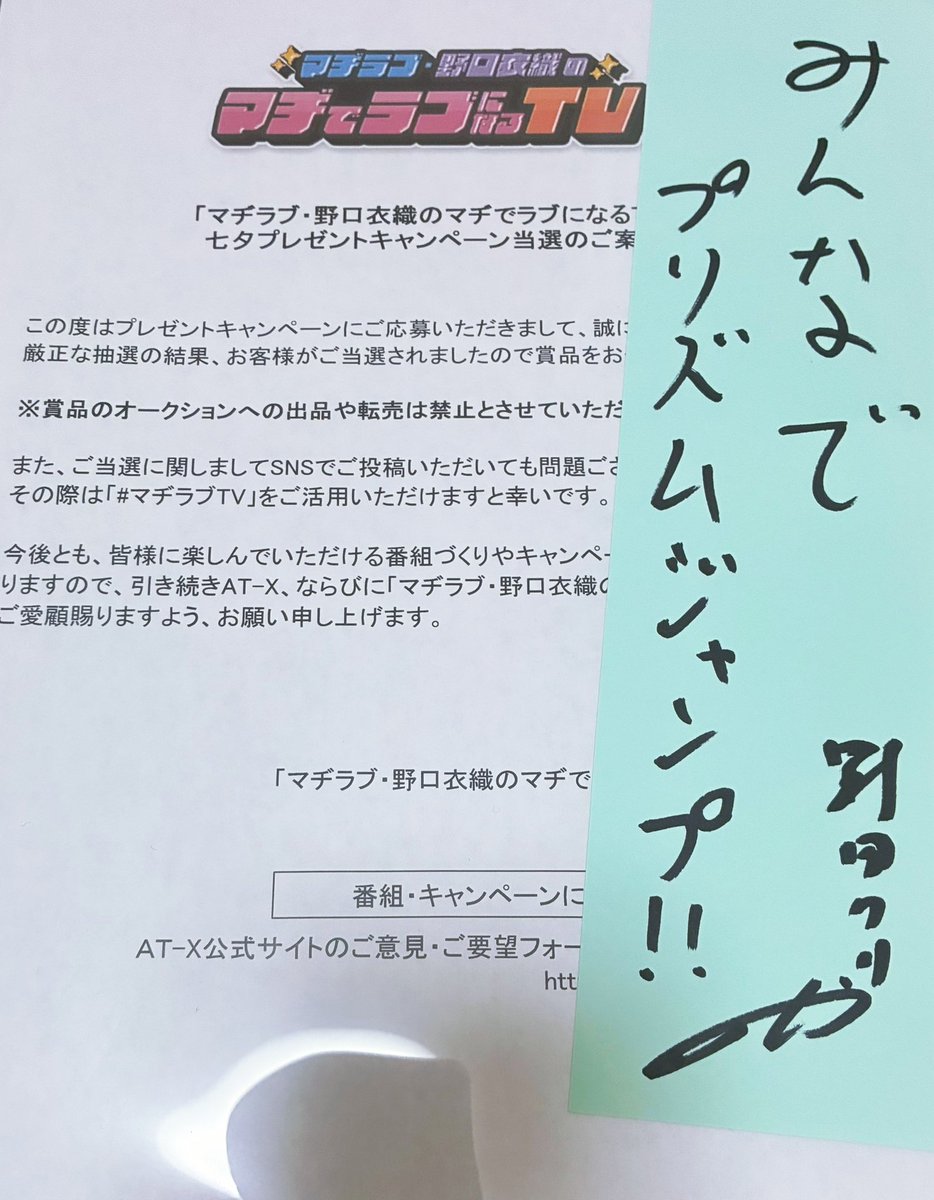 マヂラブ・野口衣織の
マヂでラブになるTV
「マヂラブ・野口衣織のマヂでラブになる
七夕プレゼントキャンペーン当選のご案
この度はプレゼントキャンペーンにご応募いただきまして、誠に
厳正な抽選の結果、お客様がご当選されましたので賞品をお
※賞品のオークションへの出品や転売は禁止とさせていただ
また、ご当選に関しましてSNSでご投稿いただいても問題ござ
その際は「#マヂラブTV」をご活用いただけますと幸いです。
今後とも、皆様に楽しんでいただける番組づくりやキャンペー
りますので、引き続きAT-X、ならびに「マヂラブ・野口衣織の
ご愛顧賜りますよう、お願い申し上げます。
「マヂラブ・野口衣織のマヂで
番組・キャンペーンに
AT-X公式サイトのご意見・ご要望フォー
htt
みんなで
プリズムジャンプ!!
野田クリ